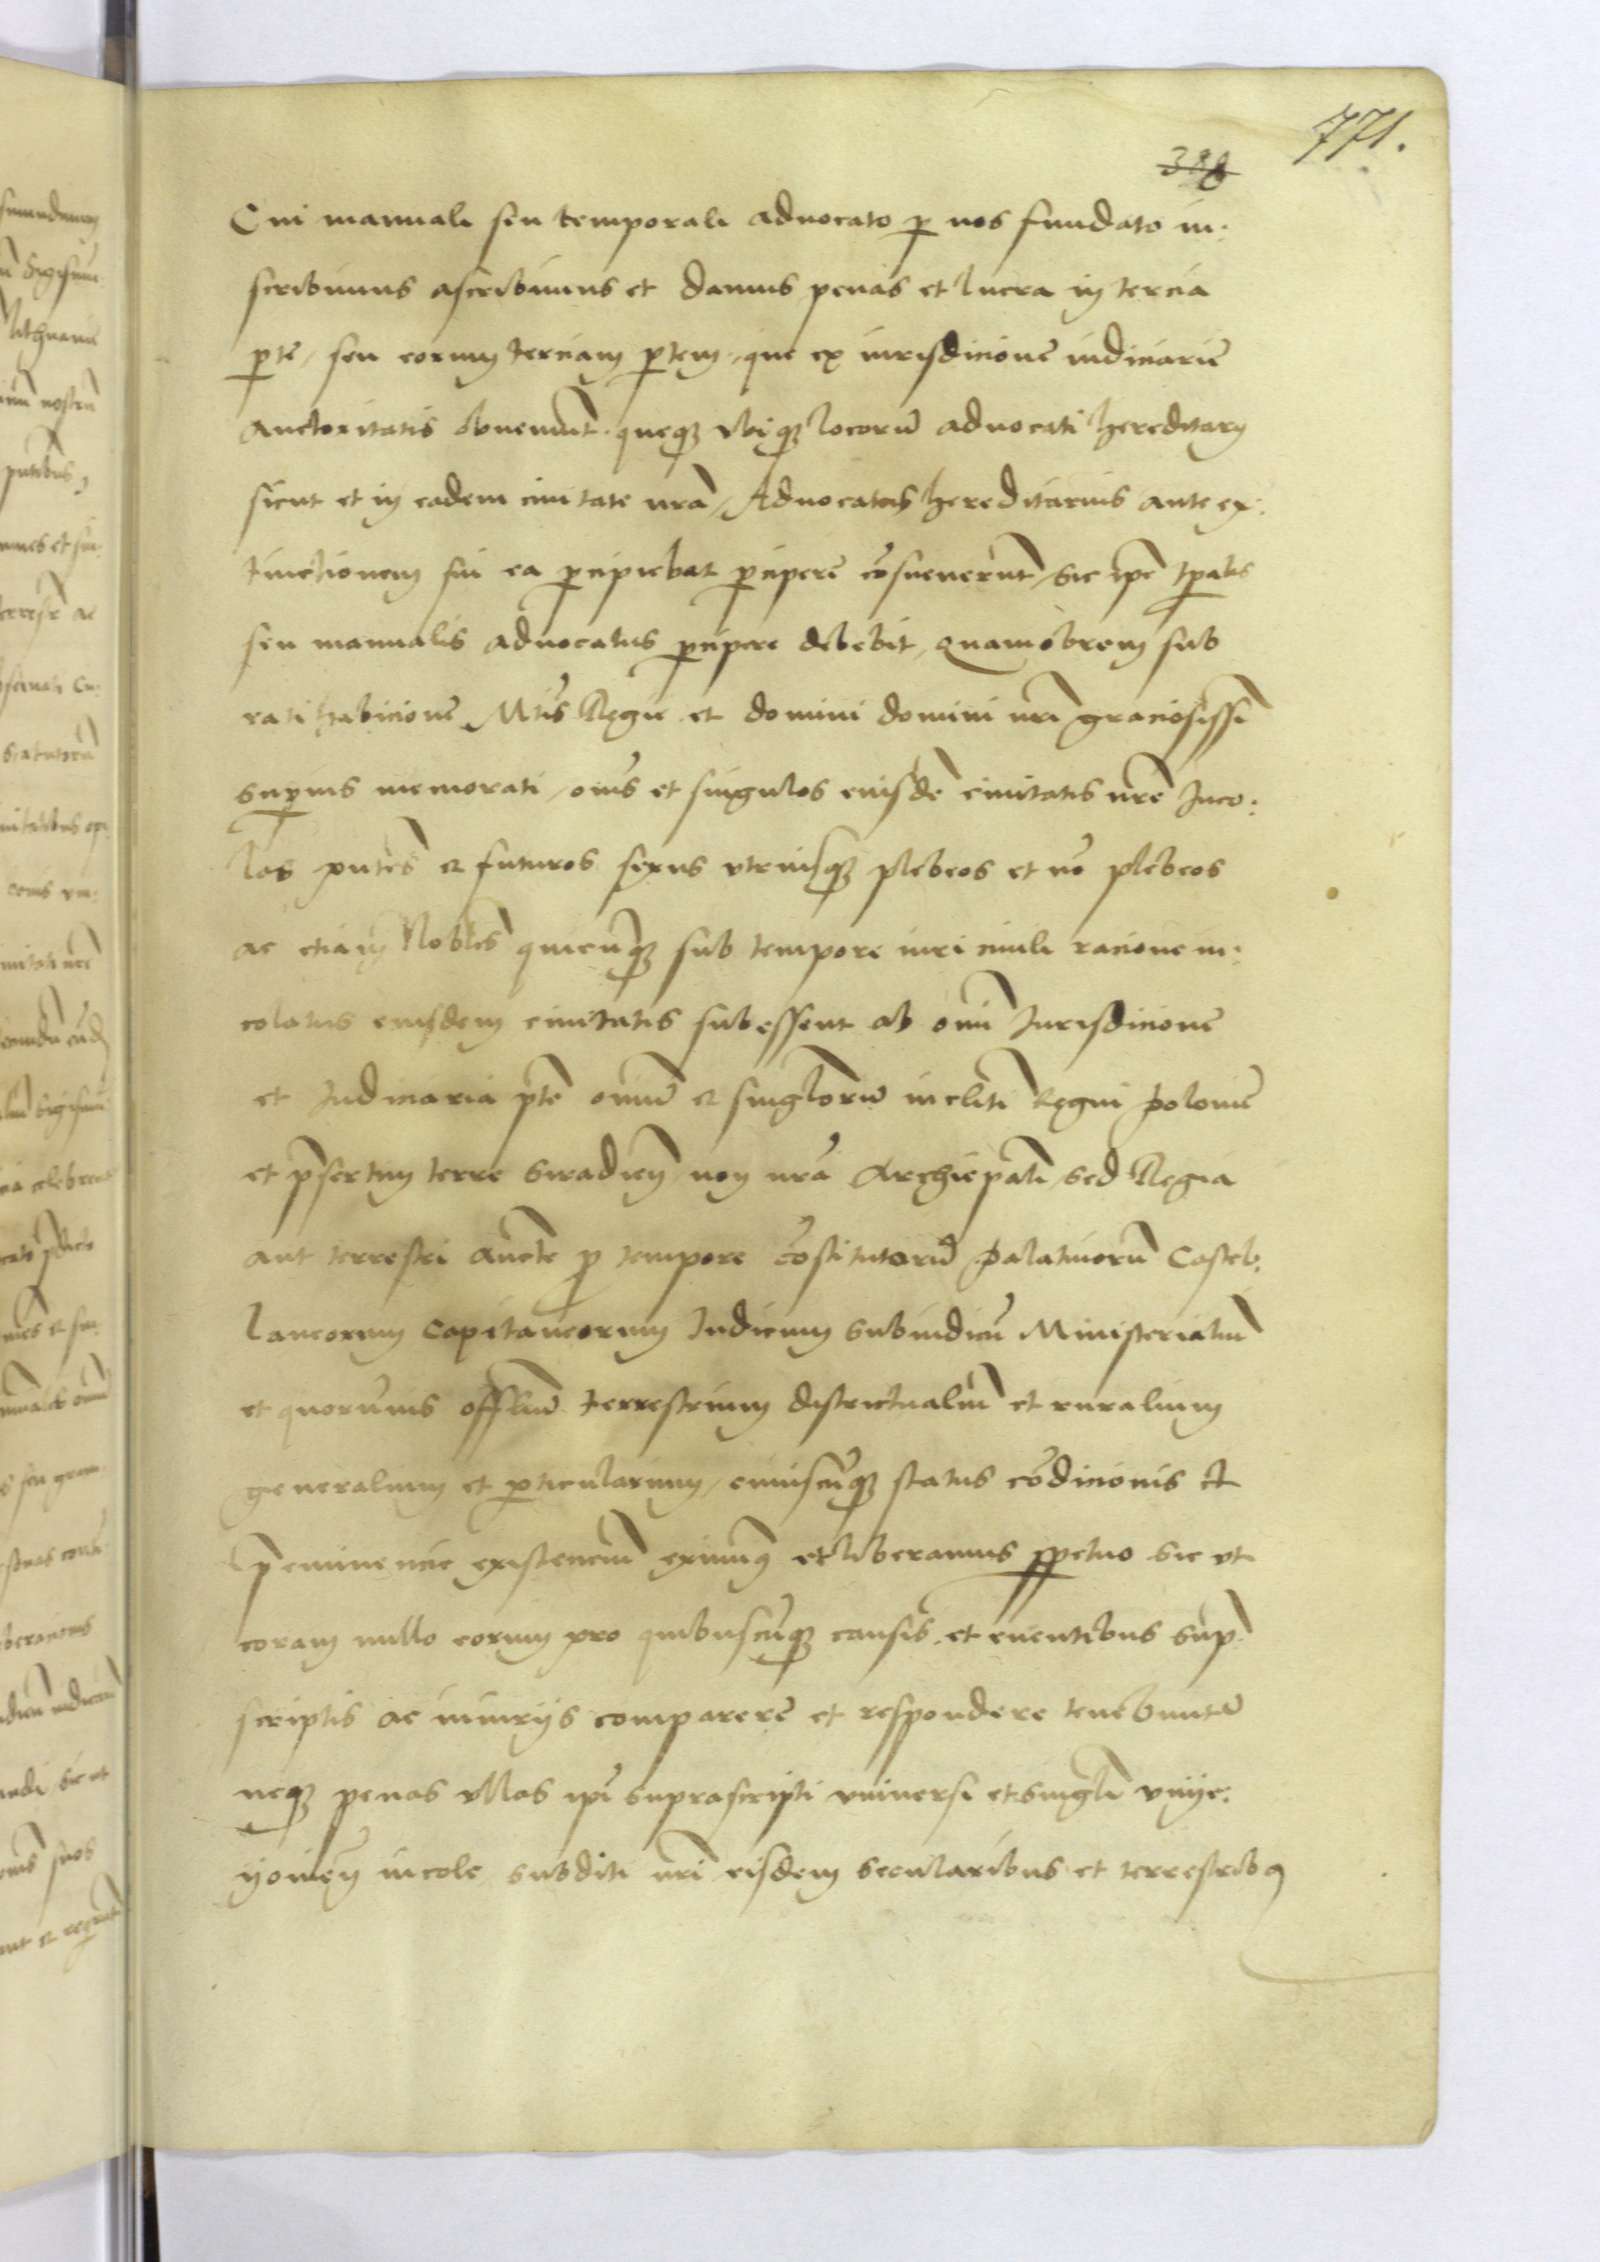 771.
388
Cui manuali seu temporali aduocato ꝑ nos fundato in:
scribimus ascribimus et damus penas et lucra in tercia
ꝑte, seu eorum terciam ꝑtem, que ex iurisdicione iudiciarie
auctoritatis obueniūt. queqꝫ vbiqꝫ locorū aduocati hereditarij
sicut et in eadem ciuitate nrā, Aduocatus hereditarius ante ex:
tinctionem sui ea ꝑcipiebat ꝑcipere cōsueuerūt, sic ipē tꝑalis
seu manualis aduocatus ꝑcipere debebit, quamobrem sub
ratihabicione Mtīs Regie et domini domini nrī graciosissi
suꝑius memorati, oīes et singulos eiusdē ciuitatis nrē Inco:
las pn̄tes et futuros sexus vtriusqꝫ plebeos et nō plebeos
ac etiam Nobiles quicūqꝫ sub tempore iuri ciuili racione in:
colatus eiusdem ciuitatis subessent ab omī Iurisdicione
et Iudiciaria ptē omiū et singlorū incliti Regni Polonie
et p̄sertim terre Siradien̄ non nrā Archiepālī, sed Regia
aut terrestri auctē ꝓ tempore cōstitutorū Palatinorū Castel:
laneorum Capitaneorum Iudicum Subiudicū Ministerialiū
et quorūuis offliū terrestrium districtualiū et ruralium
generalium et ꝑticularium, cuiuscūqꝫ status cōdicionis et
p̄eminencie existenciū eximimꝰ et liberamus ꝑpetuo sic vt
coram nullo eorum pro quibuscūqꝫ causis et euentibus sup̄:
scriptis ac iniurijs comparere et respondere tenebuntur
neqꝫ penas vllas ipī suprascripti vniuersi et singli vnije:
youien̄ incole subditi nrī eisdem secularibus et terrestribꝰ